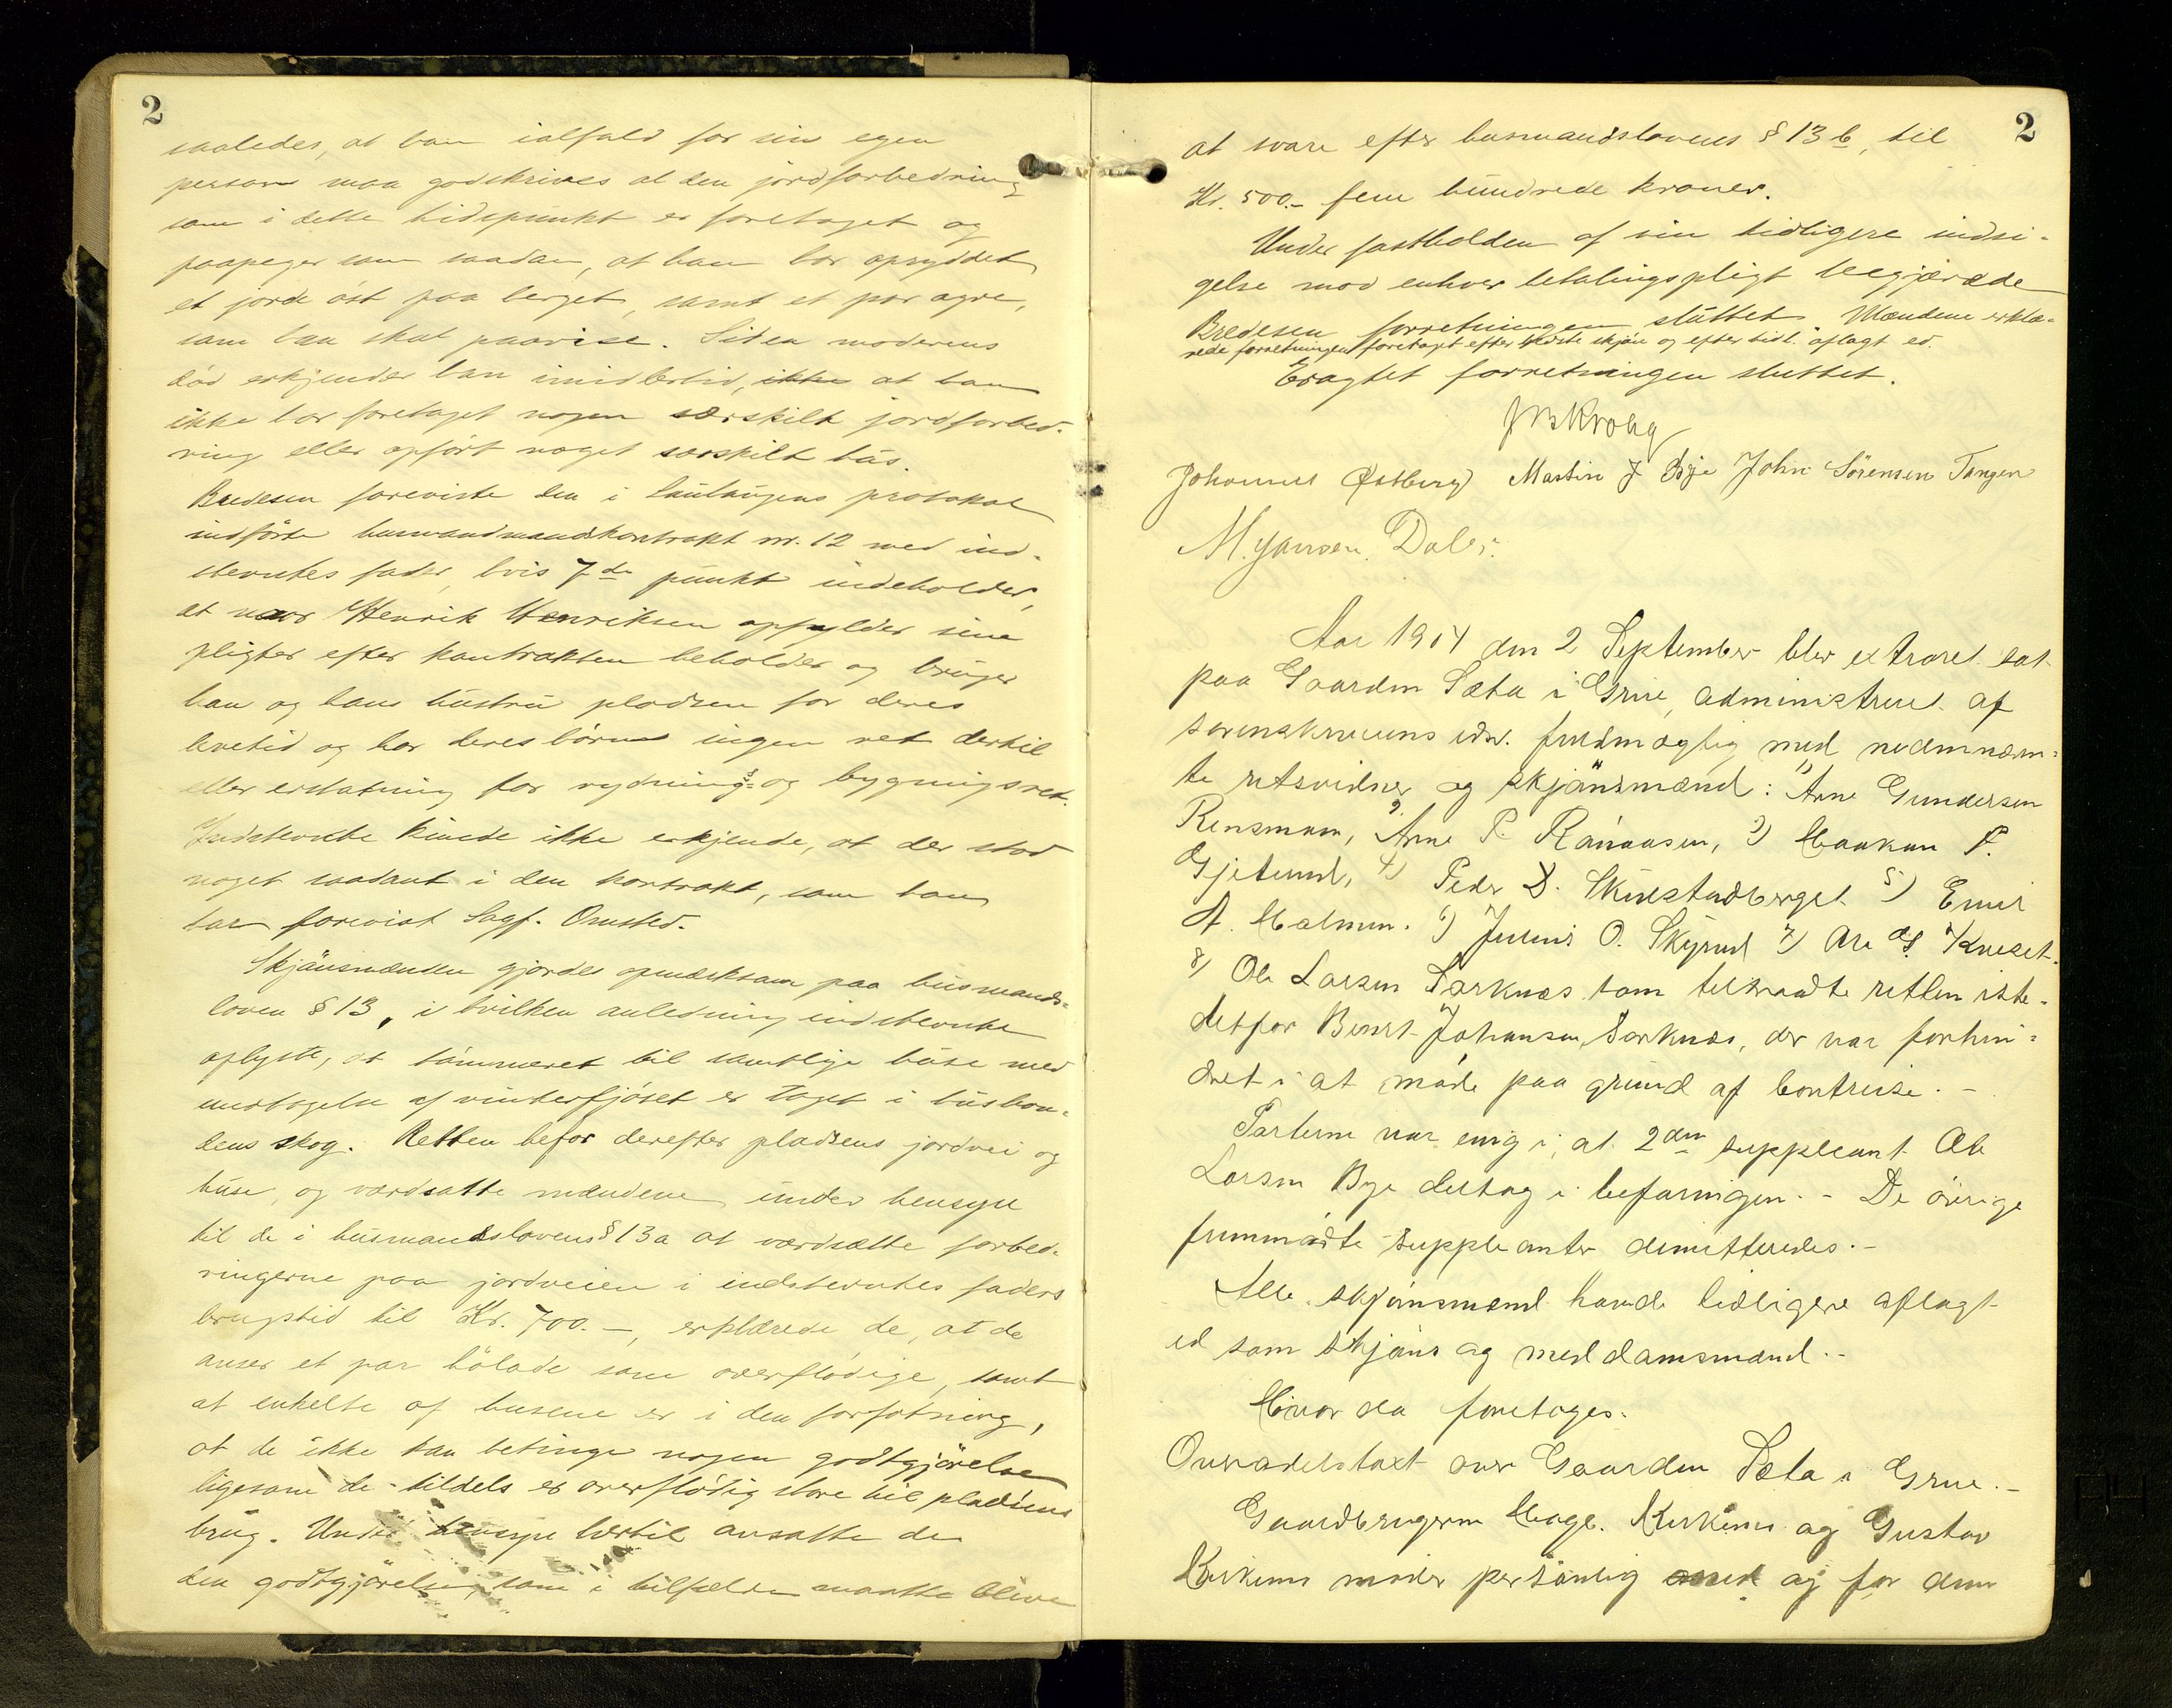 2
saaledes, at han ialfald for sin egen
person maa godskrives al den jordforbedring
som i dette tidspunkt er foretaget og
paapeger som saadan, at han har opryddet
et jorde öst paa berget, samt et par agre,
som han skal paavise. Siden moderens
död erkjender han imidlertid, ikke at han
ikke har foretaget nogen særskilt jordforbed-
ring eller opfört noget særskilt hus.
Bredesen foreviste den i laulaugens protokol
indförte husmandmandskontrakt nr. 12 med ind-
stevntes fader, hvis 7de punkt indeholder,
at naar Henrik Henriksen opfylder sine
pligter efter kontrakten beholder og bruger
han og hans hustru pladsen for deres
levetid og har deres börn ingen ret dertil
eller erstatning for rydnings- og bygningsret.
Indstevnte kunde ikke erkjende, at der stod
noget saadant i den kontrakt, som han
har forevist Sagf. Omsted.
Skjönsmænden gjordes opmerksom paa husmands-
loven § 13, i hvilken anledning indstevnte
oplyste, at tömmeret til samtlige huse med
undtagelse af vinterfjöset er taget i husbon-
dens skog. Retten befor derefter pladsens jordvei og
huse, og værdsatte mændene under hensyn
til de i husmandslovens § 13a at værdsætte forbed-
ringerne paa jordveien i indstevntes faders
brugstid til Kr. 700.-, erklærede de, at de
anser et par hölade som overflödige, samt
at enkelte af husene er i den forfatning,
at de ikke kan betinge nogen godtgjörelse
ligesom de tildels er overflödig store til pladsens
brug. Under hensyn hertil ansatte de
den godtgjörelse, som i tilfælde maatte blive
2
at svare efter husmandslovens § 13 b, til
Kr. 500.- fem hundrede kroner.
Under fastholden af sin tidligere indsi-
gelse mod enhver betalingspligt begjærede
Bredesen forretningen sluttet. Mændene erklæ-
rede forretningen foretaget efter bedste skjön og efter tidl. aflagt ed.
Eragtet forretningen sluttet.
JB Krohg
Johannes Østberg Martin J Bye John Sörensen Tangen
M. Jansen Dolv.
Aar 1904 den 2 September blev extraret sat
paa Gaarden Sæta i Grue, administreret af
sorenskriverens edsv. fuldmægtig med nedennævn-
te retsvidner og skjönsmænd: 1) Arne Gundersen
Rensmoen, 2) Arne P. Ranaasen, 3) Haakon P.
Gjetund, 4) Peder D. Skulstadberget 5) Emil
A. Holmen. 6) Julius O. Skyrud 7) Are O. Kveset.
8) Ole Larsen Sorknæs som tiltraadte retten iste-
detfor Bernt Johansen Sorknæs, der var forhin-
dret i at möde paa grund af bortreise. -
Parterne var enig i, at 2den suppleant Ole
Larsen Bye deltog i befaringen. - De övrige
fremmödte suppleanter demitteredes. -
Alle skjönsmænd havde tidligere aflagt
ed som skjöns og meddomsmænd. -
Hvor da foretoges.
Overodelstaxt over Gaarden Sæta i Grue. -
Gaardbrugerne Hage. Kirkemo og Gustav
Kirkemo möder personlig og for dem